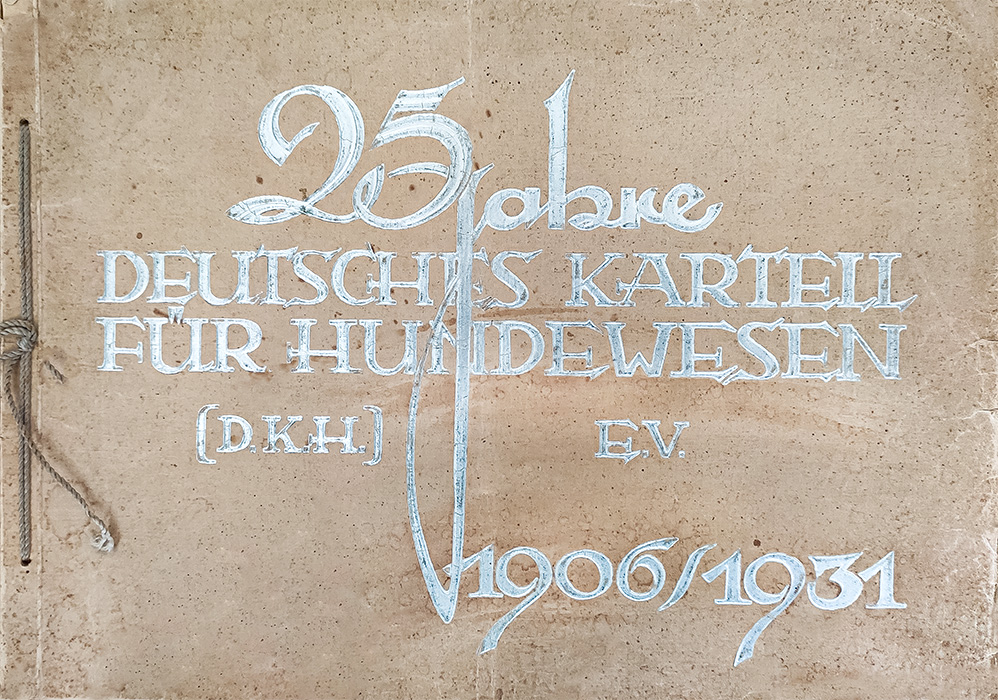 25 Jahre
DEUTSCHES KARTELL
FÜR HUNDEWESEN
(D.K.H.) E.V.
1906/1931